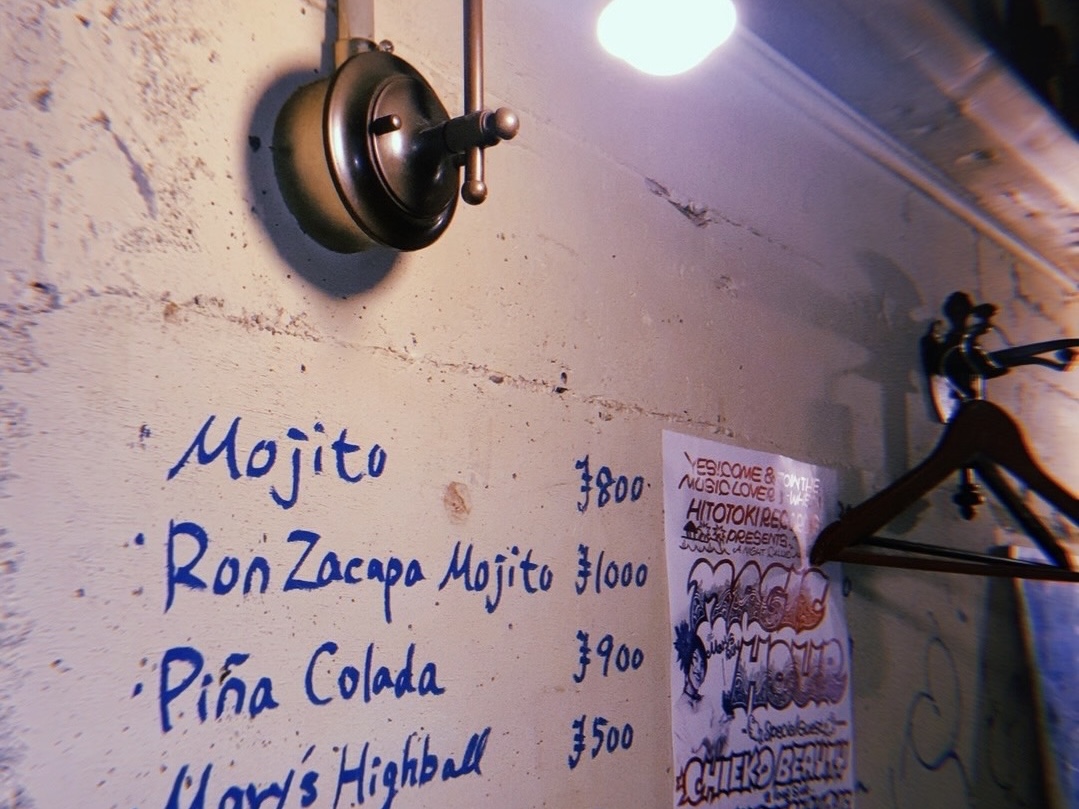 Mojito ¥800
Ron Zacapa Mojito ¥1000
Piña Colada ¥900
Mary's Highball ¥500
YES! COME &
MUSIC LOVER
HITOTOKI
PRESENTS
A NIGHT CALLED
MAGIC
HOUR
Special Guest
CHIEKO